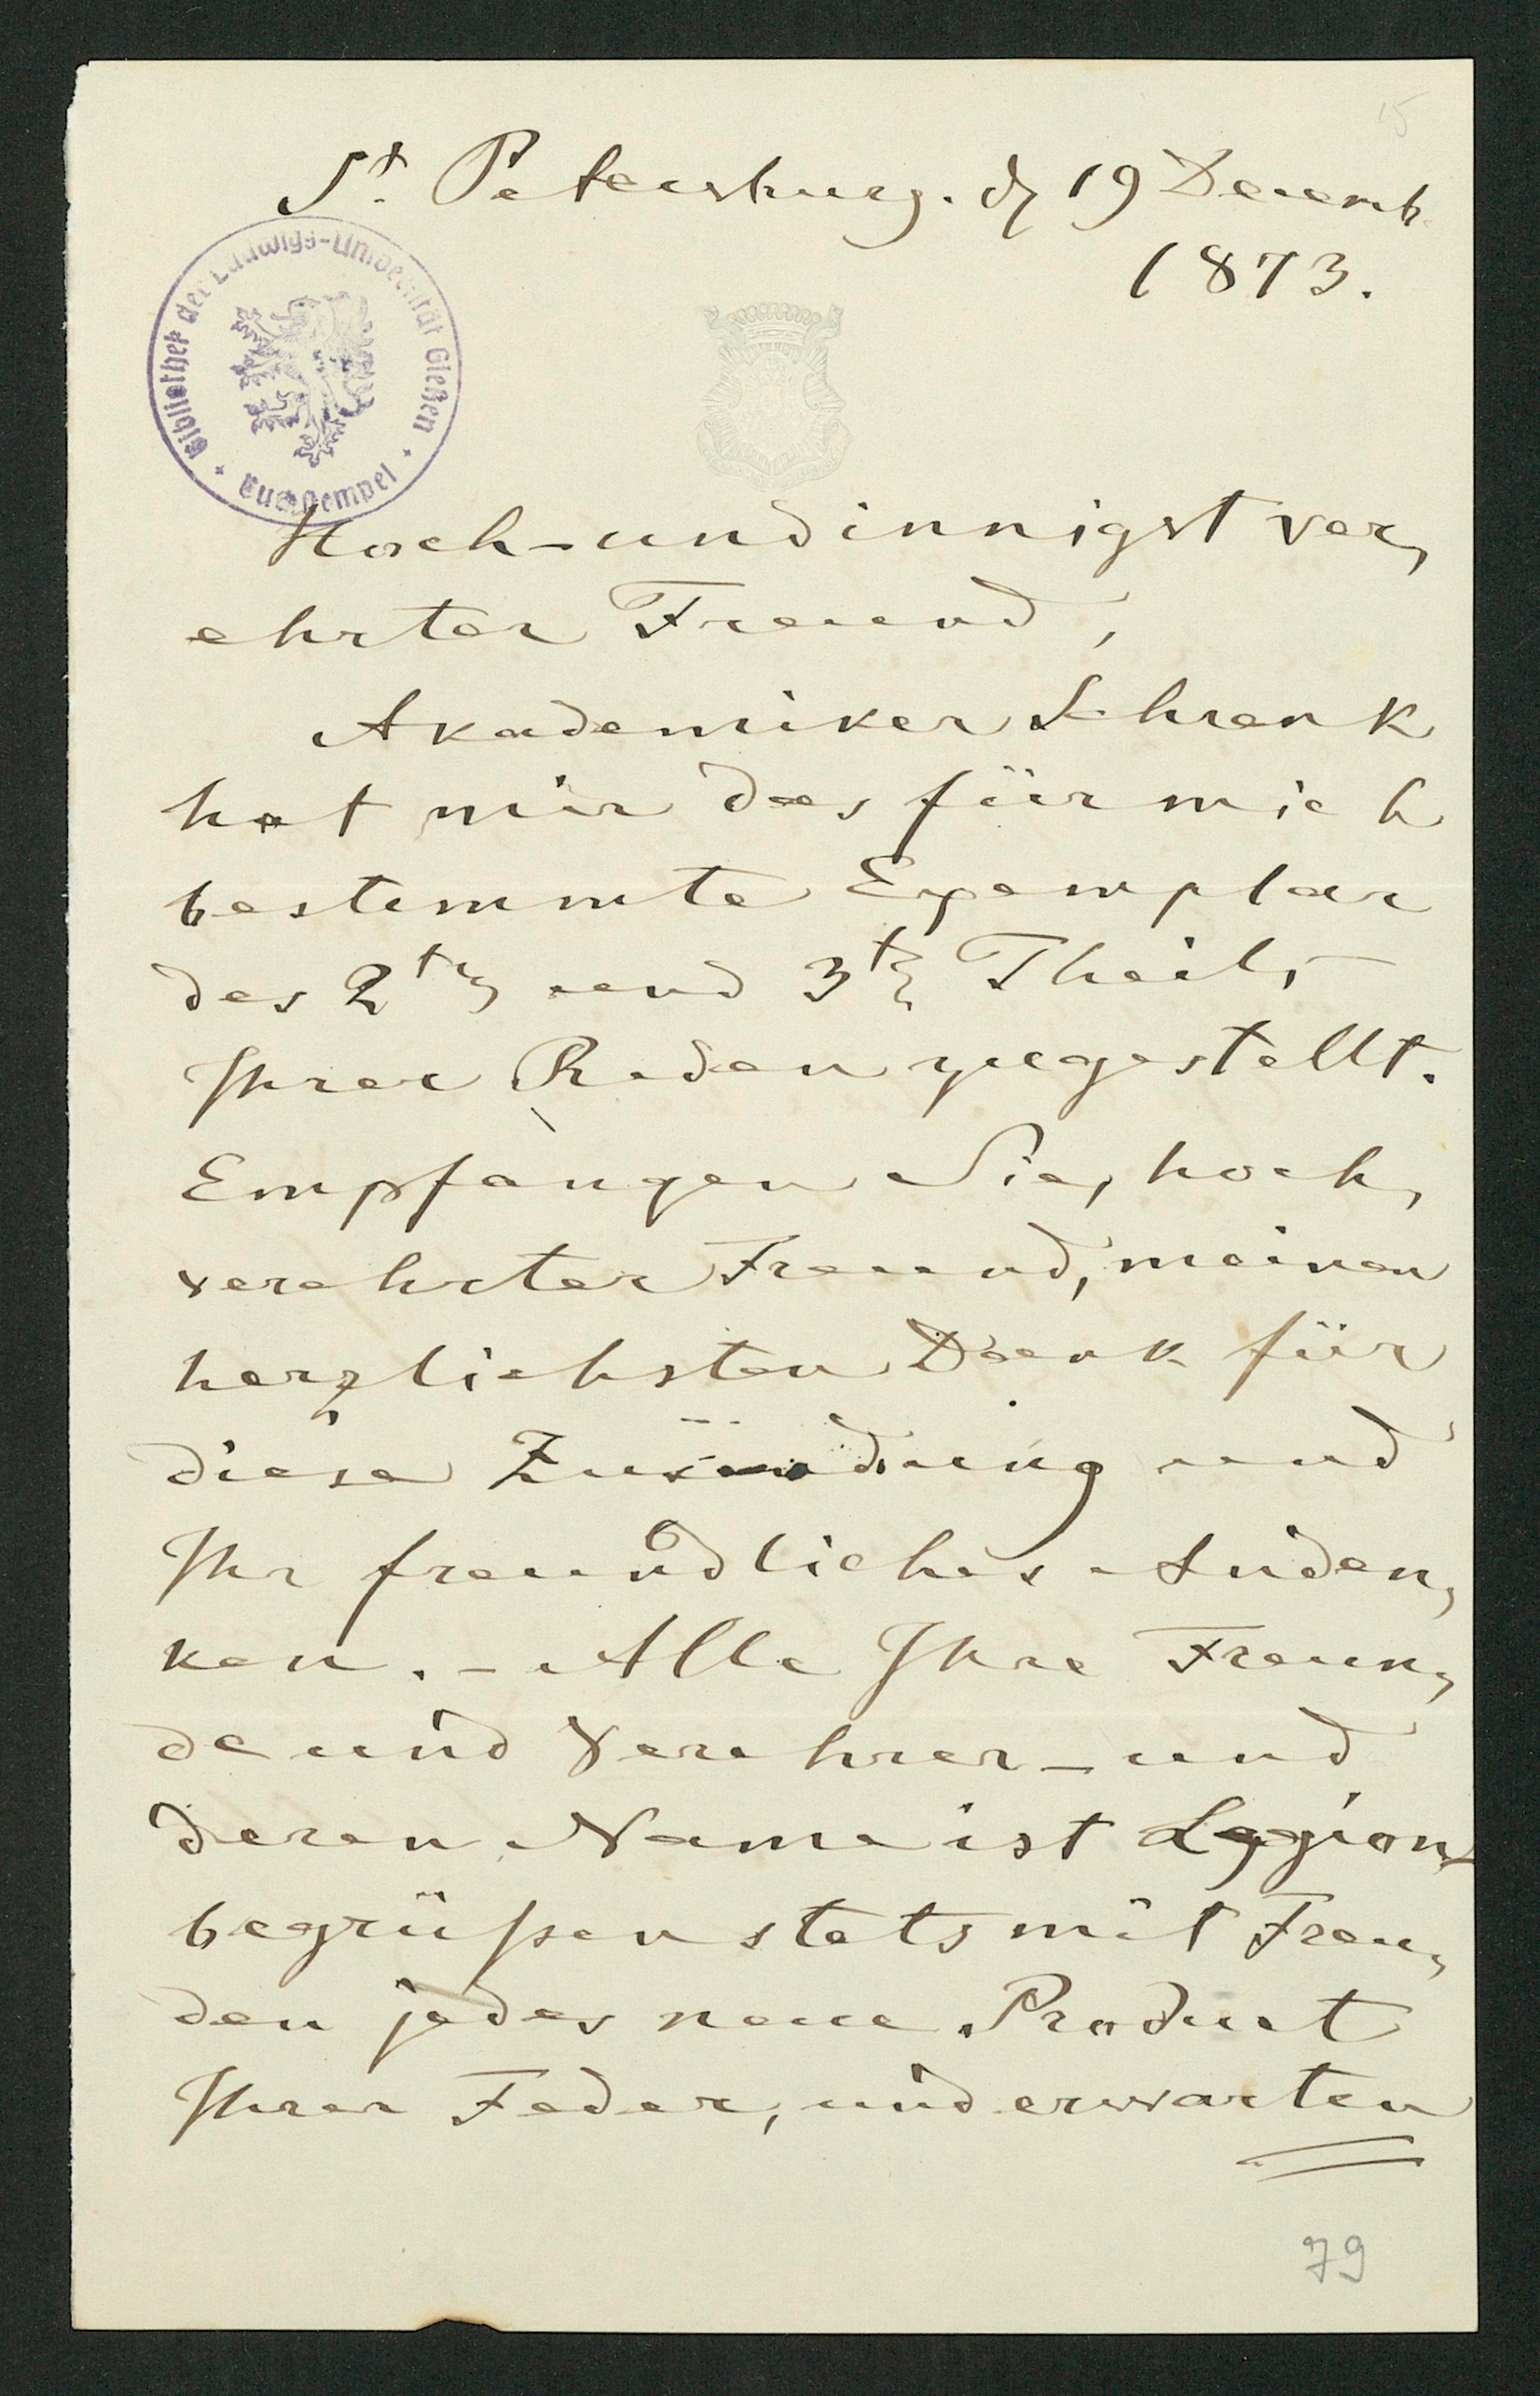 15
St. Petersburg. d 19 Decemb.
1873.
Bibliothek der Ludwigs-Universität Gießen
Hoch-und innigst ver,
ehrter Freund,
Akademiker Schrenk
hat mir das für mich
bestimmte Exemplar
des 2ten und 3ten Theils
Ihrer Reden zugestellt.
Empfangen Sie, hoch,
verehrter Freund, meinen
herzlichsten Dank für
diese Zusendung und
Ihr freundliches Anden,
ken. - Alle Ihre Freun,
de und Verehrer - und
deren Name ist Legion -
begrüßen stets mit Freu,
den jedes neue Product
Ihrer Feder, und erwarten
79